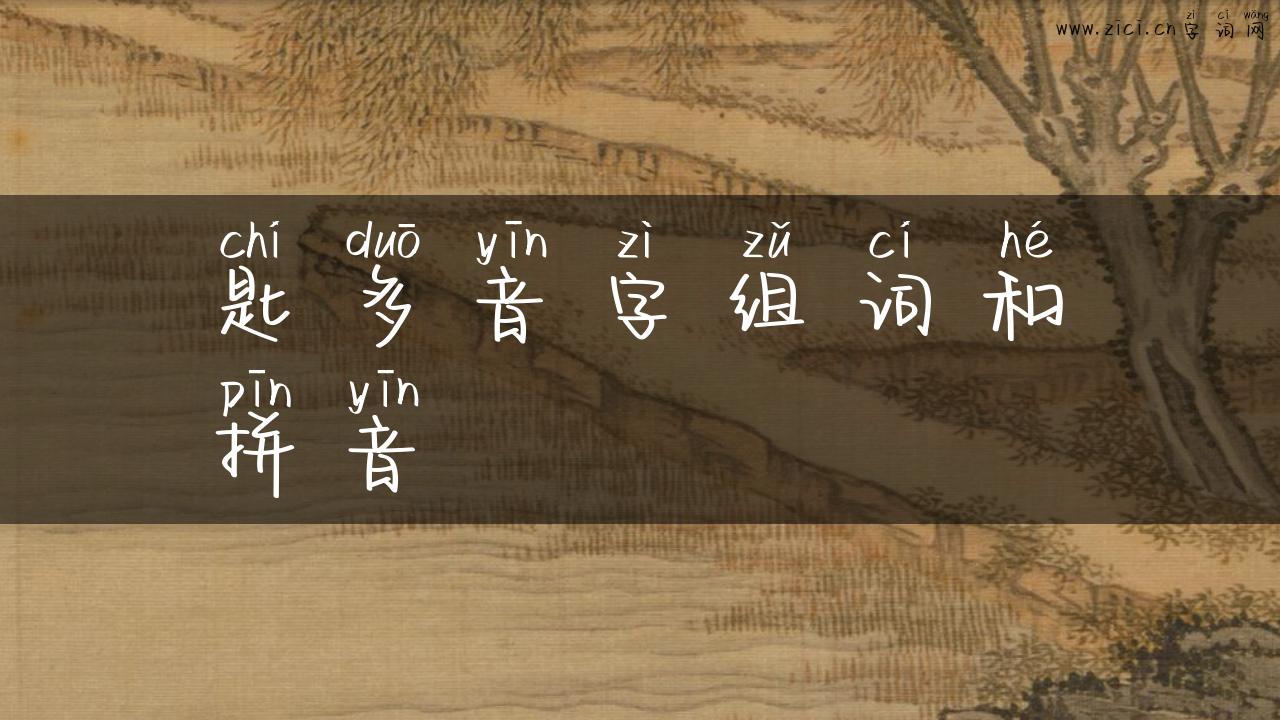 zì cí wǎng
www.zici.cn字词网
chí duō yīn zì zǔ cí hé
匙多音字组词和
pīn yīn
拼音